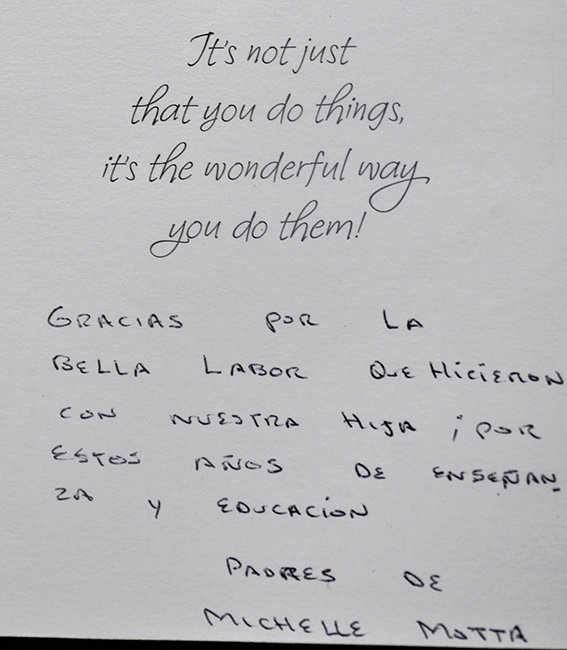 It's not just
that you do things,
it's the wonderful way
you do them!
GRACIAS POR LA
BELLA LABOR QUE HICIERON
CON NUESTRA HIJA ¡ POR
ESTOS AÑOS DE ENSEÑAN_
ZA Y EDUCACIÓN
PADRES DE
MICHELLE MOTTA